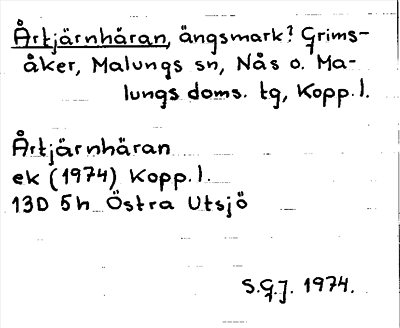 Årtjärnhäran, ängsmark? Grims-
åker, Malungs sn, Nås o. Ma-
lungs doms. tg, Kopp.l.
Årtjärnhäran
ek (1974) Kopp.l.
13D 5h Östra Utsjö
S.G.J. 1974.